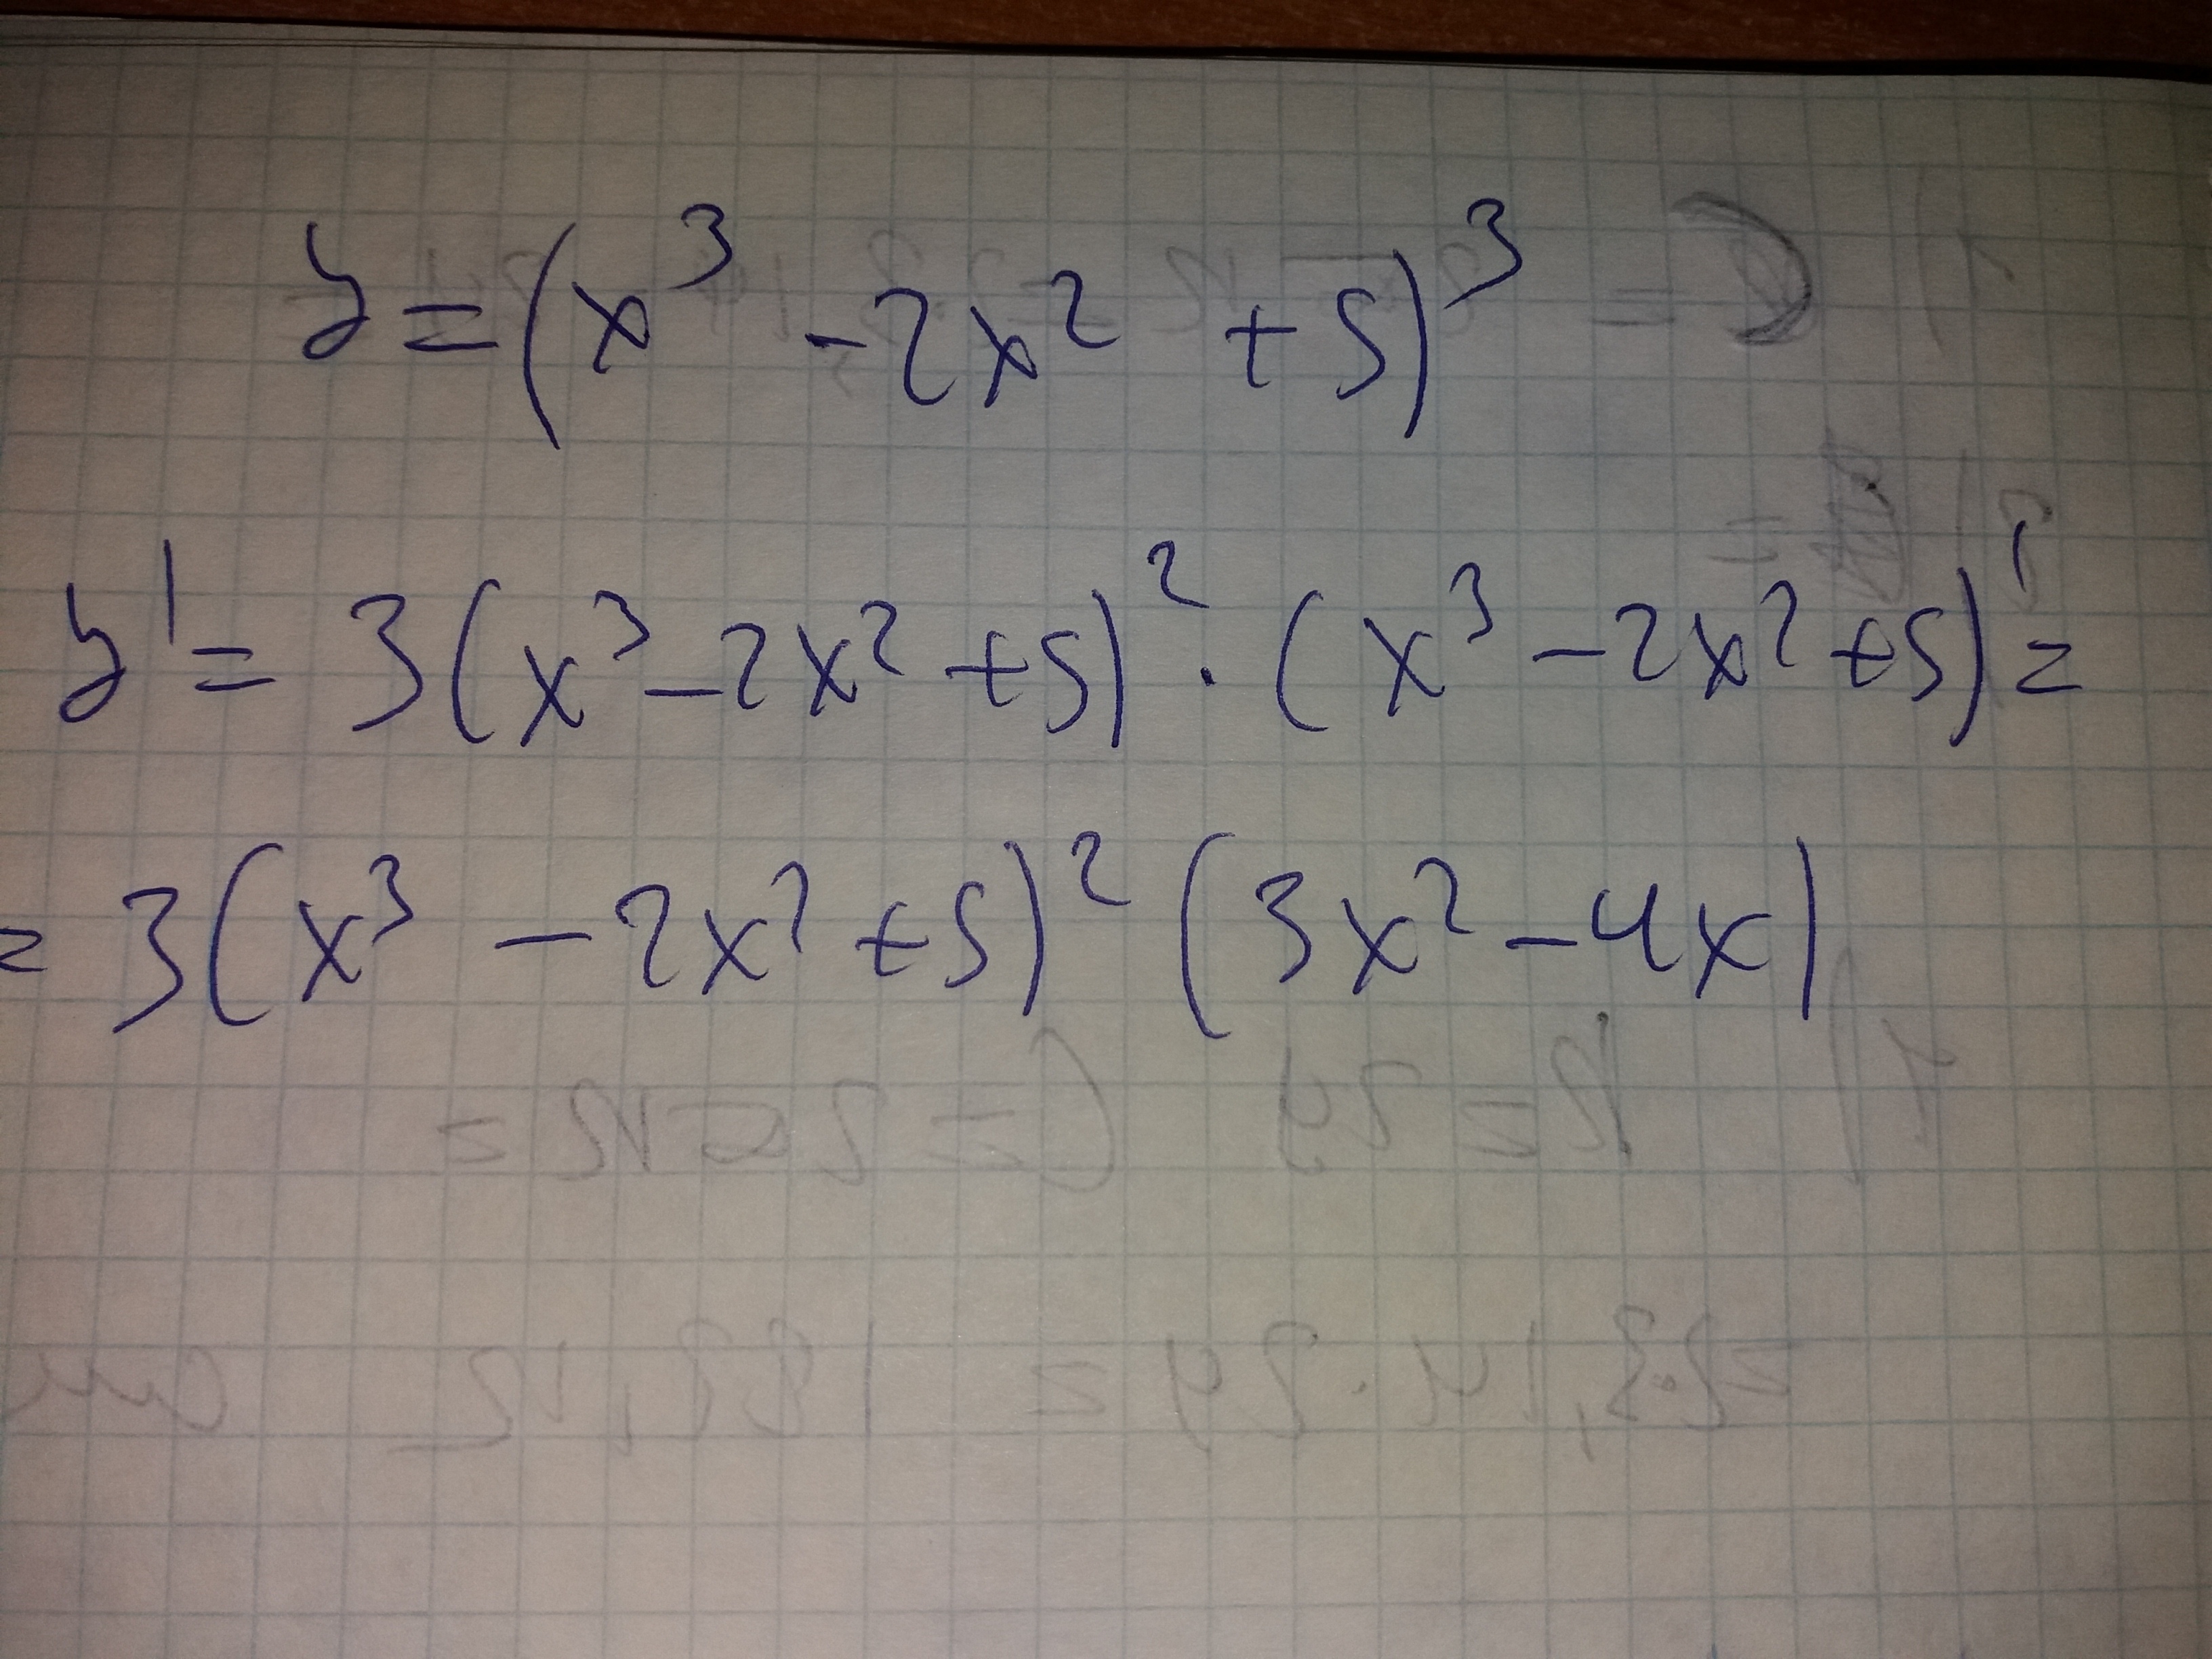 y = (x³ - 2x² + 5)³
y' = 3(x³ - 2x² + 5)² · (x³ - 2x² + 5)' =
= 3(x³ - 2x² + 5)² (3x² - 4x)